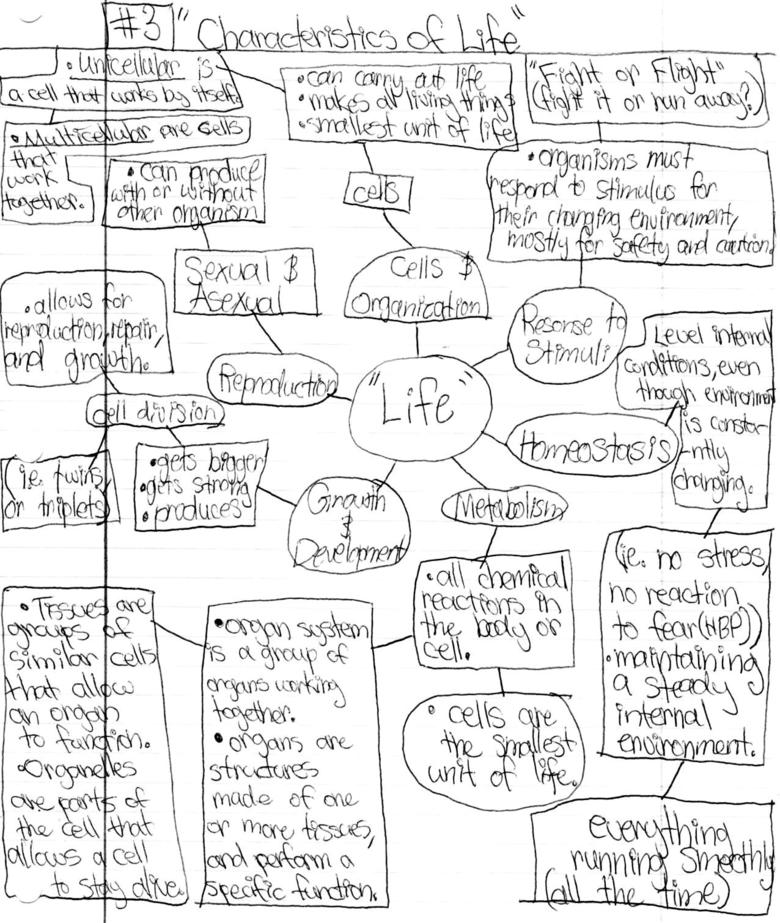 #3 "Characteristics of Life"
• Unicellular is
a cell that works by itself.
• Multicellular are cells
that
work
together.
• can carry out life
• makes all living things
• smallest unit of life
"Fight or Flight"
(fight it or run away?)
• can produce
with or without
other organism
cells
• organisms must
respond to stimulus for
their changing environment,
mostly for safety and caution.
Sexual &
Asexual
Cells &
Organization
Resonse to
Stimuli
• allows for
reproduction, repair,
and growth.
Reproduction
"Life"
Level internal
conditions, even
though environment
is consta-
ntly
changing.
cell division
Homeostasis
(i.e. twins
or triplets)
• gets bigger
• gets strong
• produces
Growth
&
Development
Metabolism
• all chemical
reactions in
the body or
cell.
(ie. no stress,
no reaction
to fear (HBP))
• maintaining
a steady
internal
environment.
• Tissues are
groups of
similar cells
that allow
an organ
to function.
• Organelles
are parts of
the cell that
allows a cell
to stay alive.
• organ system
is a group of
organs working
together.
• organs are
structures
made of one
or more tissues,
and perform a
specific function.
• cells are
the smallest
unit of life.
everything
running smoothly
(all the time)